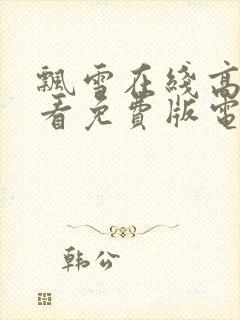 飘雪在线高
看免费版电
韩公